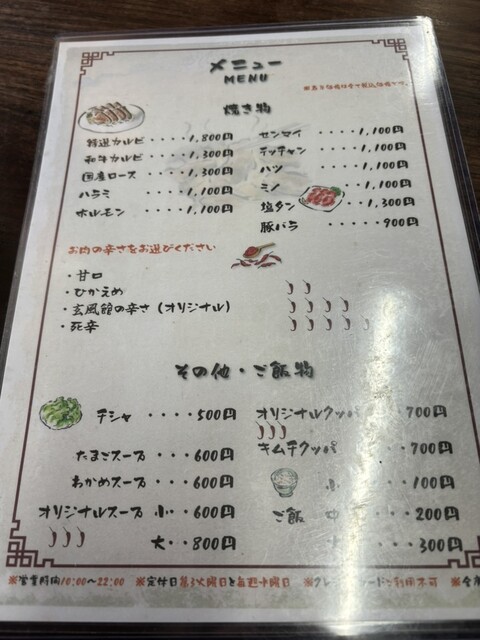 メニュー
MENU
焼き物
特選カルビ ・・・・1,800円
和牛カルビ ・・・・1,300円
国産ロース ・・・・1,300円
ハラミ ・・・・1,100円
ホルモン ・・・・1,100円
センマイ ・・・・1,100円
テッチャン ・・・・1,100円
ハツ ・・・・1,100円
ミノ ・・1,100円
塩タン ・・1,300円
豚バラ ・・・・・900円
お肉の辛さをお選びください
・甘口
・ひかえめ
・玄風館の辛さ(オリジナル)
・死辛
その他・ご飯物
チシャ ・・・・500円
たまごスープ ・・・600円
わかめスープ ・・・600円
オリジナルスープ 小・・600円
大・・800円
オリジナルクッパ ・・700円
キムチクッパ ・・・700円
小 ・・100円
ご飯 中 ・・200円
大 ・・300円
※営業時間10:00〜22:00 ※定休日第3火曜日と毎週水曜日